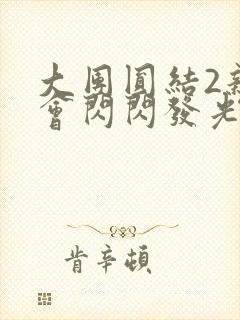 大團圓結2新
會閃閃發光
肯辛頓